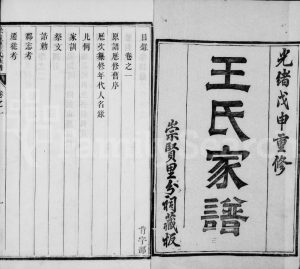 光緒戊申重修
王氏家譜
崇賢里分祠藏板
目錄
卷之一
原譜歷修舊序
歷次纂修年代人名錄
凡例
家訓
祭文
郡志考
遷徙考